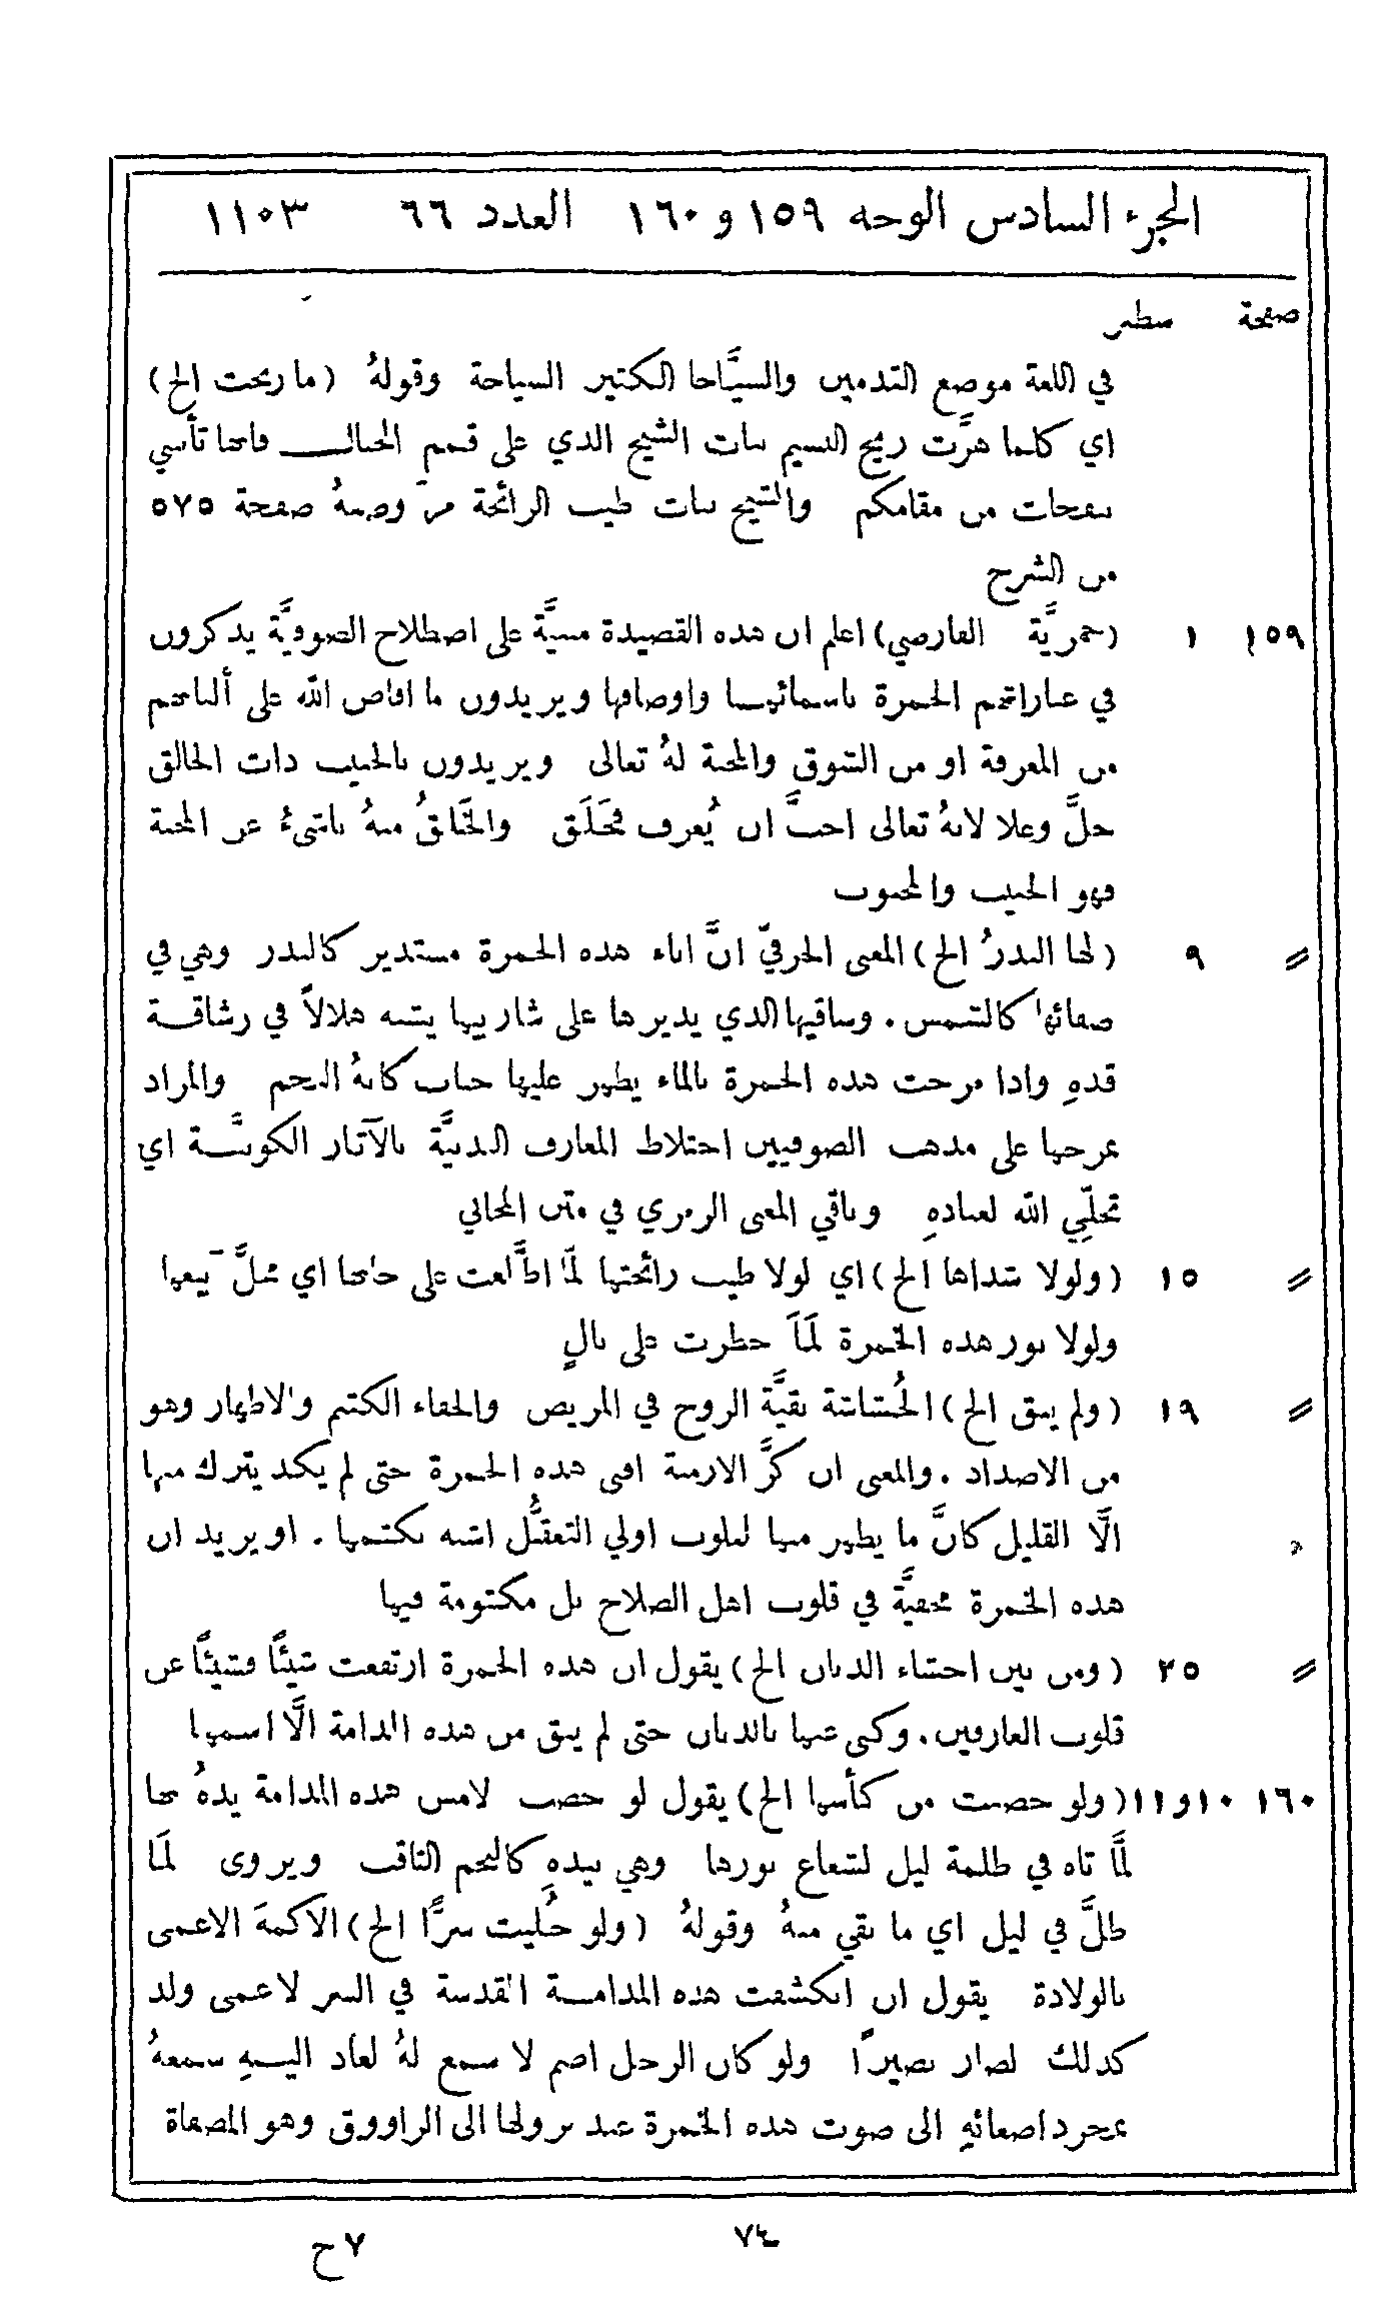 الجزء السادس الوجه ١٥٩ و ١٦٠ العدد ٦٦ ١١٠٣
صفحة سطر
في اللغة موضع القدمين والسيَّاحا الكثير السياحة وقولهُ (ما ربحت الخ)
اي كلما هزَّت ريح النسيم نبات الشيح الذي على قمم الجبال فانها تأتي
بنفحات من مقامكم والشيح نبات طيب الرائحة مرّ وصفهُ صفحة ٥٧٥
من الشرح
١٥٩ ١ (خمريَّة الفارضي) اعلم ان هذه القصيدة مبنيَّة على اصطلاح الصوفيَّة يذكرون
في عباراتهم الخمرة باسمائها واوصافها ويريدون ما افاض الله على ألبابهم
من المعرفة او من الشوق والمحبة لهُ تعالى ويريدون بالحبيب ذات الخالق
جلَّ وعلا لانهُ تعالى احبَّ ان يُعرف فخَلَق والخَلقُ منهُ ناشئٌ عن المحبة
فهو الحبيب والمحبوب
〃 ٩ (لها البدرُ الخ) المعنى الحرفيّ انَّ اناء هذه الخمرة مستدير كالبدر وهي في
صفائها كالشمس. وساقيها الذي يديرها على شاربيها يشبه هلالاً في رشاقة
قدهِ واذا مزجت هذه الخمرة بالماء يظهر عليها حباب كانهُ النجم والمراد
بمزجها على مذهب الصوفيين اختلاط المعارف الدينيَّة بالآثار الكونيَّة اي
تجلّي الله لعبادهِ وباقي المعنى الرمزي في متن المجاني
〃 ١٥ (ولولا شذاها الخ) اي لولا طيب رائحتها لمّا اطَّلعت على حانها اي محلّ بيعها
ولولا نور هذه الخمرة لَمَا خطرت على بالٍ
〃 ١٩ (ولم يبق الخ) الحُشاشة بقيَّة الروح في المريض والخفاء الكتم والاظهار وهو
من الاضداد. والمعنى ان كرَّ الازمنة افنى هذه الخمرة حتى لم يكد يترك منها
الَّا القليل كانَّ ما يظهر منها لقلوب اولي التعقُّل اشبه بكتمها. او يريد ان
هذه الخمرة مخفيَّة في قلوب اهل الصلاح بل مكتومة فيها
〃 ٢٥ (ومن بين احشاء الدنان الخ) يقول ان هذه الخمرة ارتفعت شيئًا فشيئًا عن
قلوب العارفين. وكنى عنها بالدنان حتى لم يبق من هذه المدامة الَّا اسمها
١٦٠ ١٠ و١١ (ولو خضبت من كأسها الخ) يقول لو خضب لامس هذه المدامة يدهُ بها
لمَّا تاه في ظلمة ليل لشعاع نورها وهي بيدهِ كالنجم الثاقب ويروى لَمَا
ظلَّ في ليل اي ما بقي منهُ وقولهُ (ولو جُليت سرًّا الخ) الاكمهَ الاعمى
بالولادة يقول ان انكشفت هذه المدامة المقدسة في السر لاعمى ولد
كذلك لصار بصيراً ولو كان الرجل اصم لا سمع لهُ لعاد اليهِ سمعهُ
بمجرد اصغائهِ الى صوت هذه الخمرة عند نزولها الى الراووق وهو المصفاة
٧٤
٧ ح